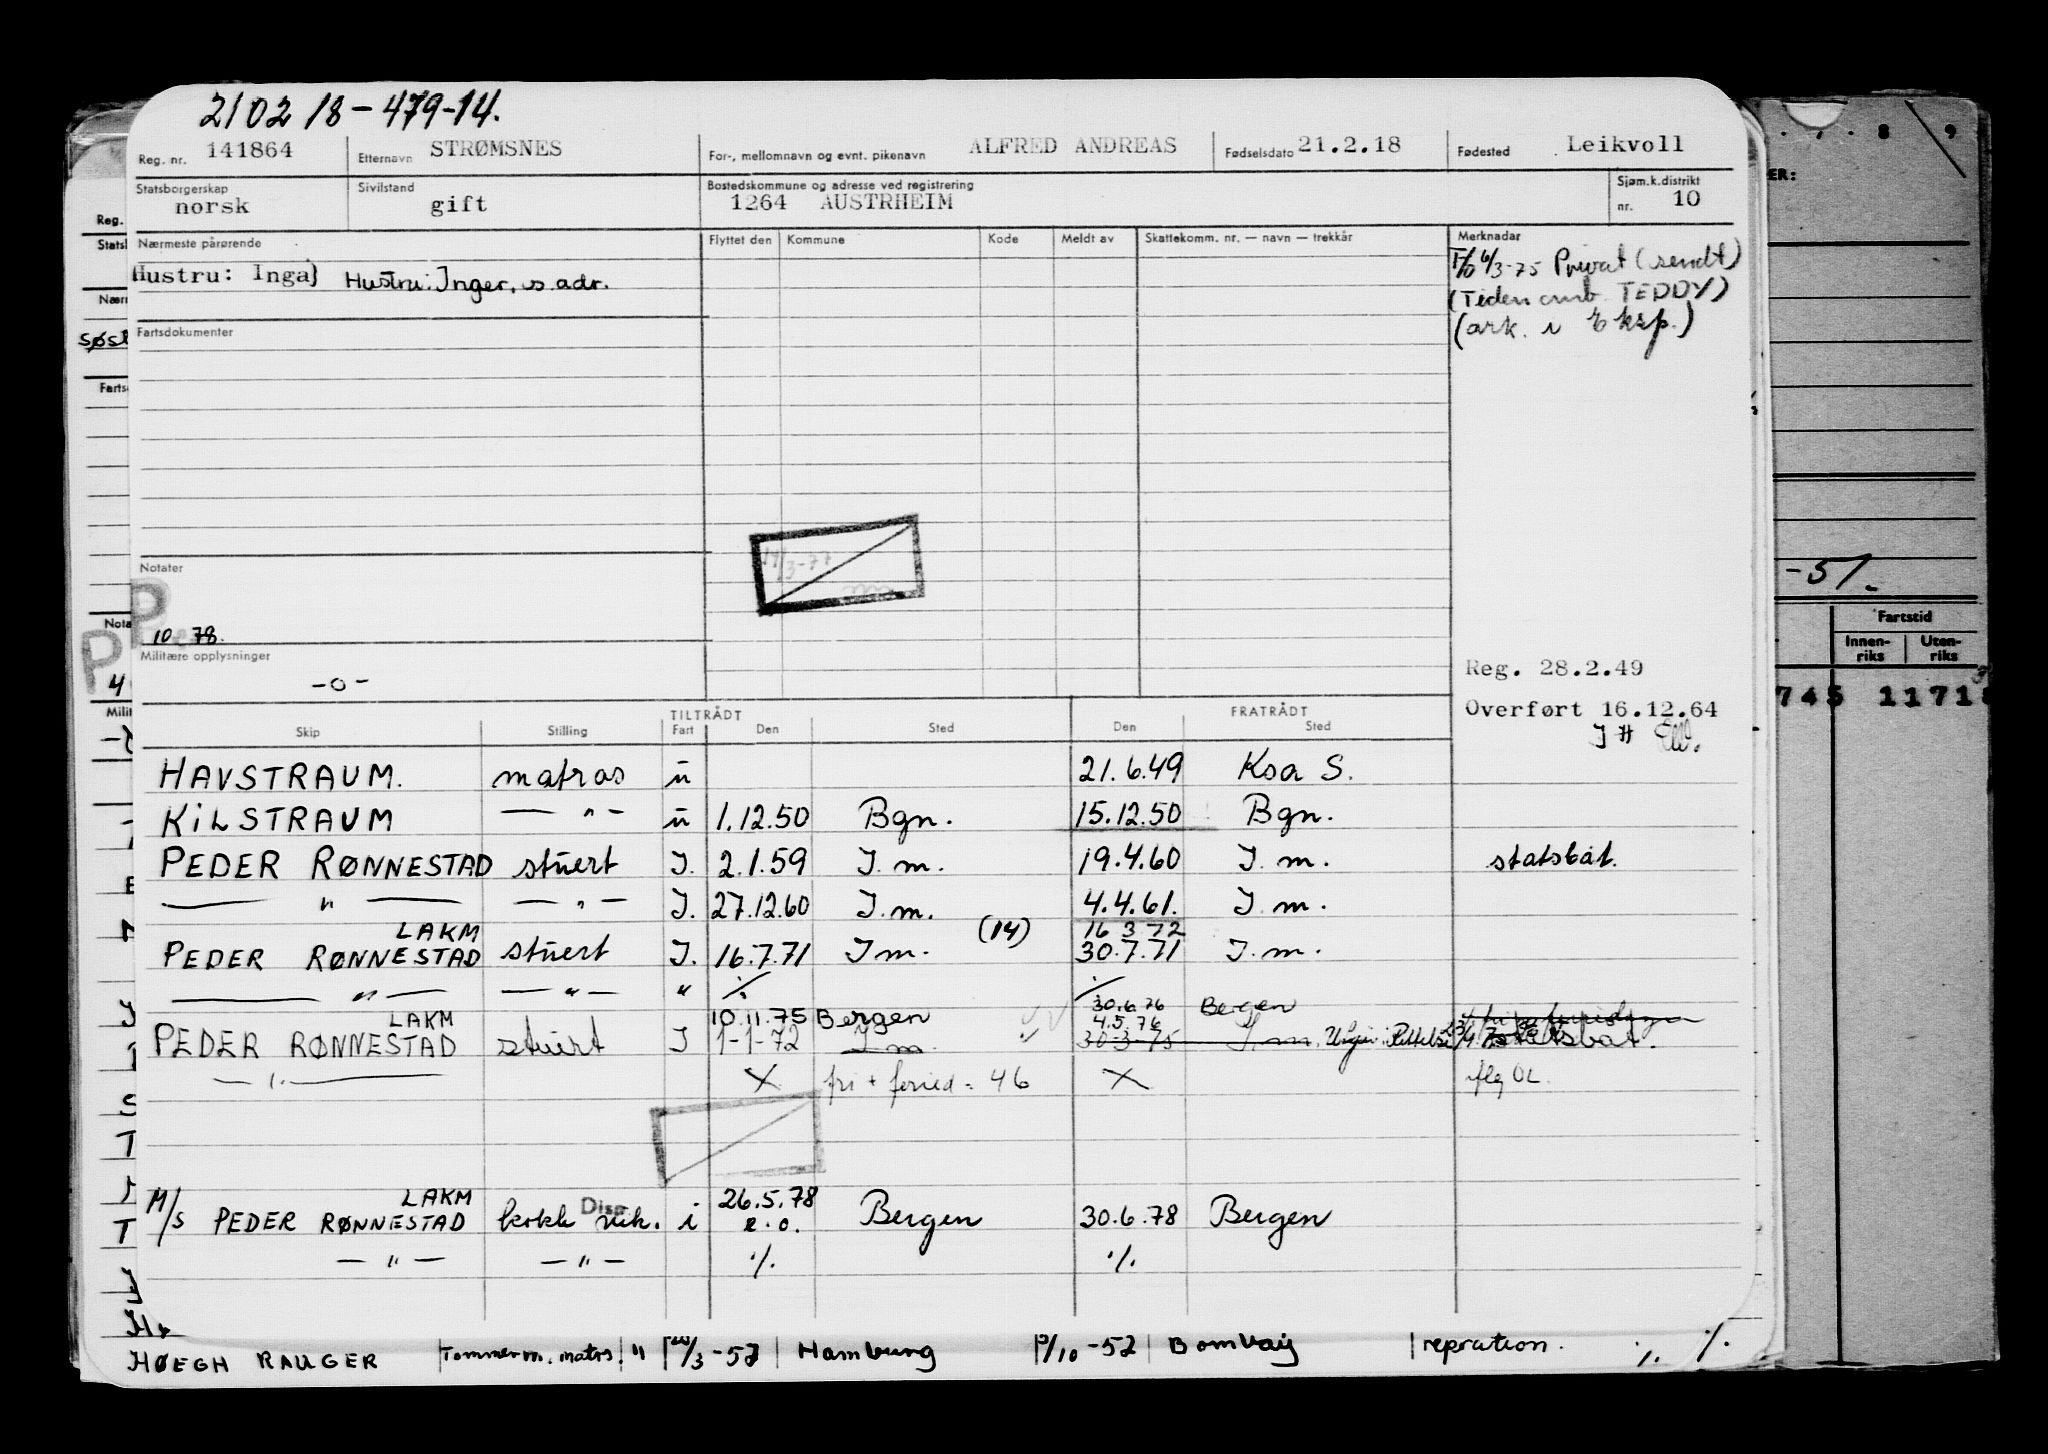 210218-479-14.
Reg. nr. 141864 Etternavn STRØMSNES For-, mellomnavn og evnt. pikenavn ALFRED ANDREAS Fødselsdato 21.2.18 Fødested Leikvoll
Statsborgerskap norsk Sivilstand gift Bostedskommune og adresse ved registrering 1264 AUSTRHEIM Sjøm.k.distrikt nr. 10
Nærmeste pårørende Flyttet den Kommune Kode Meldt av Skattekomm. nr. — navn — trekkår Merknadar
Hustru: Inga} Hustru: Inger, s. adr.
6/3-75 Privat (sendt)
(Tiden omb. TEDDY)
(ark. i Eksp.)
Fartsdokumenter
17/3-77
Notater
P
10 78.
Militære opplysninger
-o-
Reg. 28.2.49
Overført 16.12.64
TILTRÅDT FRATRÅDT
Skip Stilling Fart Den Sted Den Sted
HAVSTRAUM. matros u 21.6.49 Ksa S.
KILSTRAUM — " — u 1.12.50 Bgn. 15.12.50 Bgn.
PEDER RØNNESTAD stuert I. 2.1.59 I. m. 19.4.60 I. m. statsbåt.
— " — — " — I. 27.12.60 I. m. 4.4.61. I. m.
LAKM (14) 16 3 72
PEDER RØNNESTAD stuert I. 16.7.71 I m. 30.7.71 I. m.
— " — — " — " ./. ./. 30.6.76 Bergen
LAKM 10.11.75 Bergen 4.5.76
PEDER RØNNESTAD stuert I 1-1-72 I m. 30-3-75 I. m. statsbåt.
— " — X fri + feried = 46 X flg OL.
LAKM Disp. 26.5.78
M/S PEDER RØNNESTAD kokk vik. i e.o. Bergen 30.6.78 Bergen
— " — — " — ./. ./.
HØEGH RAUGER Tømmerm. matrs. " /3-52 Hamburg /10-52 Bombay repration. ./. ./.
Reg.
Fartstid
Innen-riks Uten-riks
-51.
745 11718